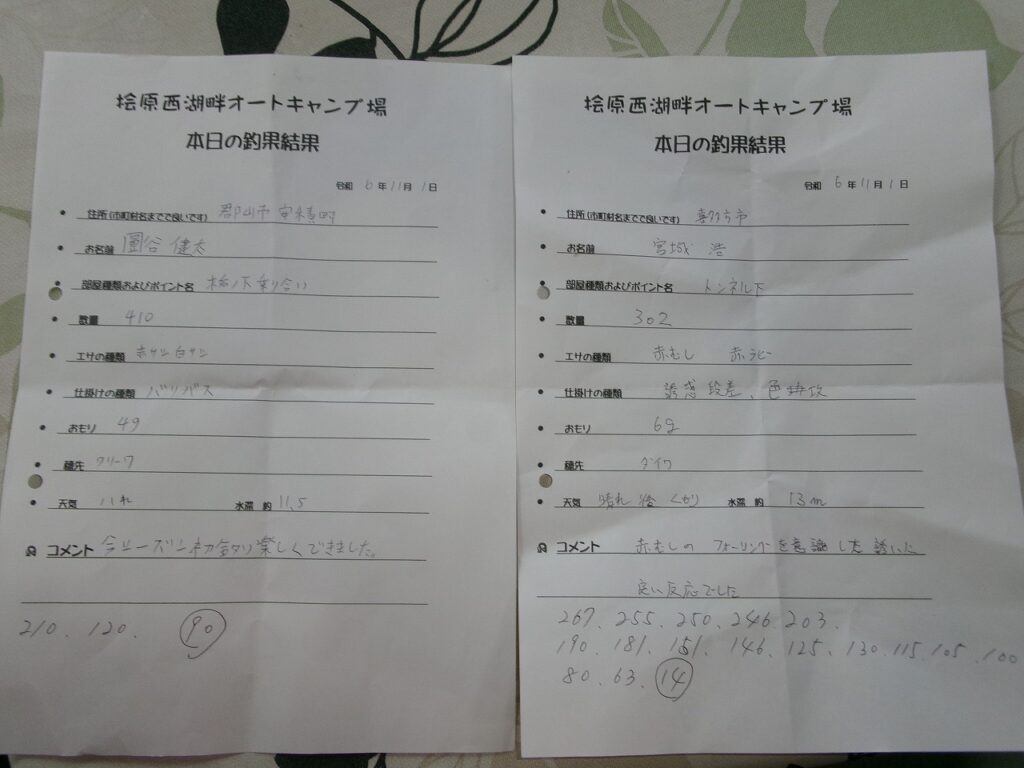 桧原西湖畔オートキャンプ場
本日の釣果結果
令和 6年11月1日
・住所(市町村名までで良いです) 郡山市 安積町
・お名前 圓谷 健太
・部屋種類およびポイント名 桧ノ下 乗り合い
・数量 410
・エサの種類 赤サシ 白サシ
・仕掛けの種類 バリバス
・おもり 4g
・穂先 クリーク
・天気 ハレ 水深 約 11.5
コメント 今シーズン初釣り楽しくできました。
210、120、90
桧原西湖畔オートキャンプ場
本日の釣果結果
令和 6年11月1日
・住所(市町村名までで良いです) 喜多方市
・お名前 宮城 浩
・部屋種類およびポイント名 トンネル下
・数量 302
・エサの種類 赤むし 赤ラビー
・仕掛けの種類 誘惑 段差、
・おもり 6g
・穂先 ダイワ
・天気 晴れ 後 くもり 水深 約 13m
コメント 赤むしの フォーリングを意識した誘いに
良い反応でした
267、255、250、246、203、
190、181、151、146、125、130、115、105、100
80、63、14